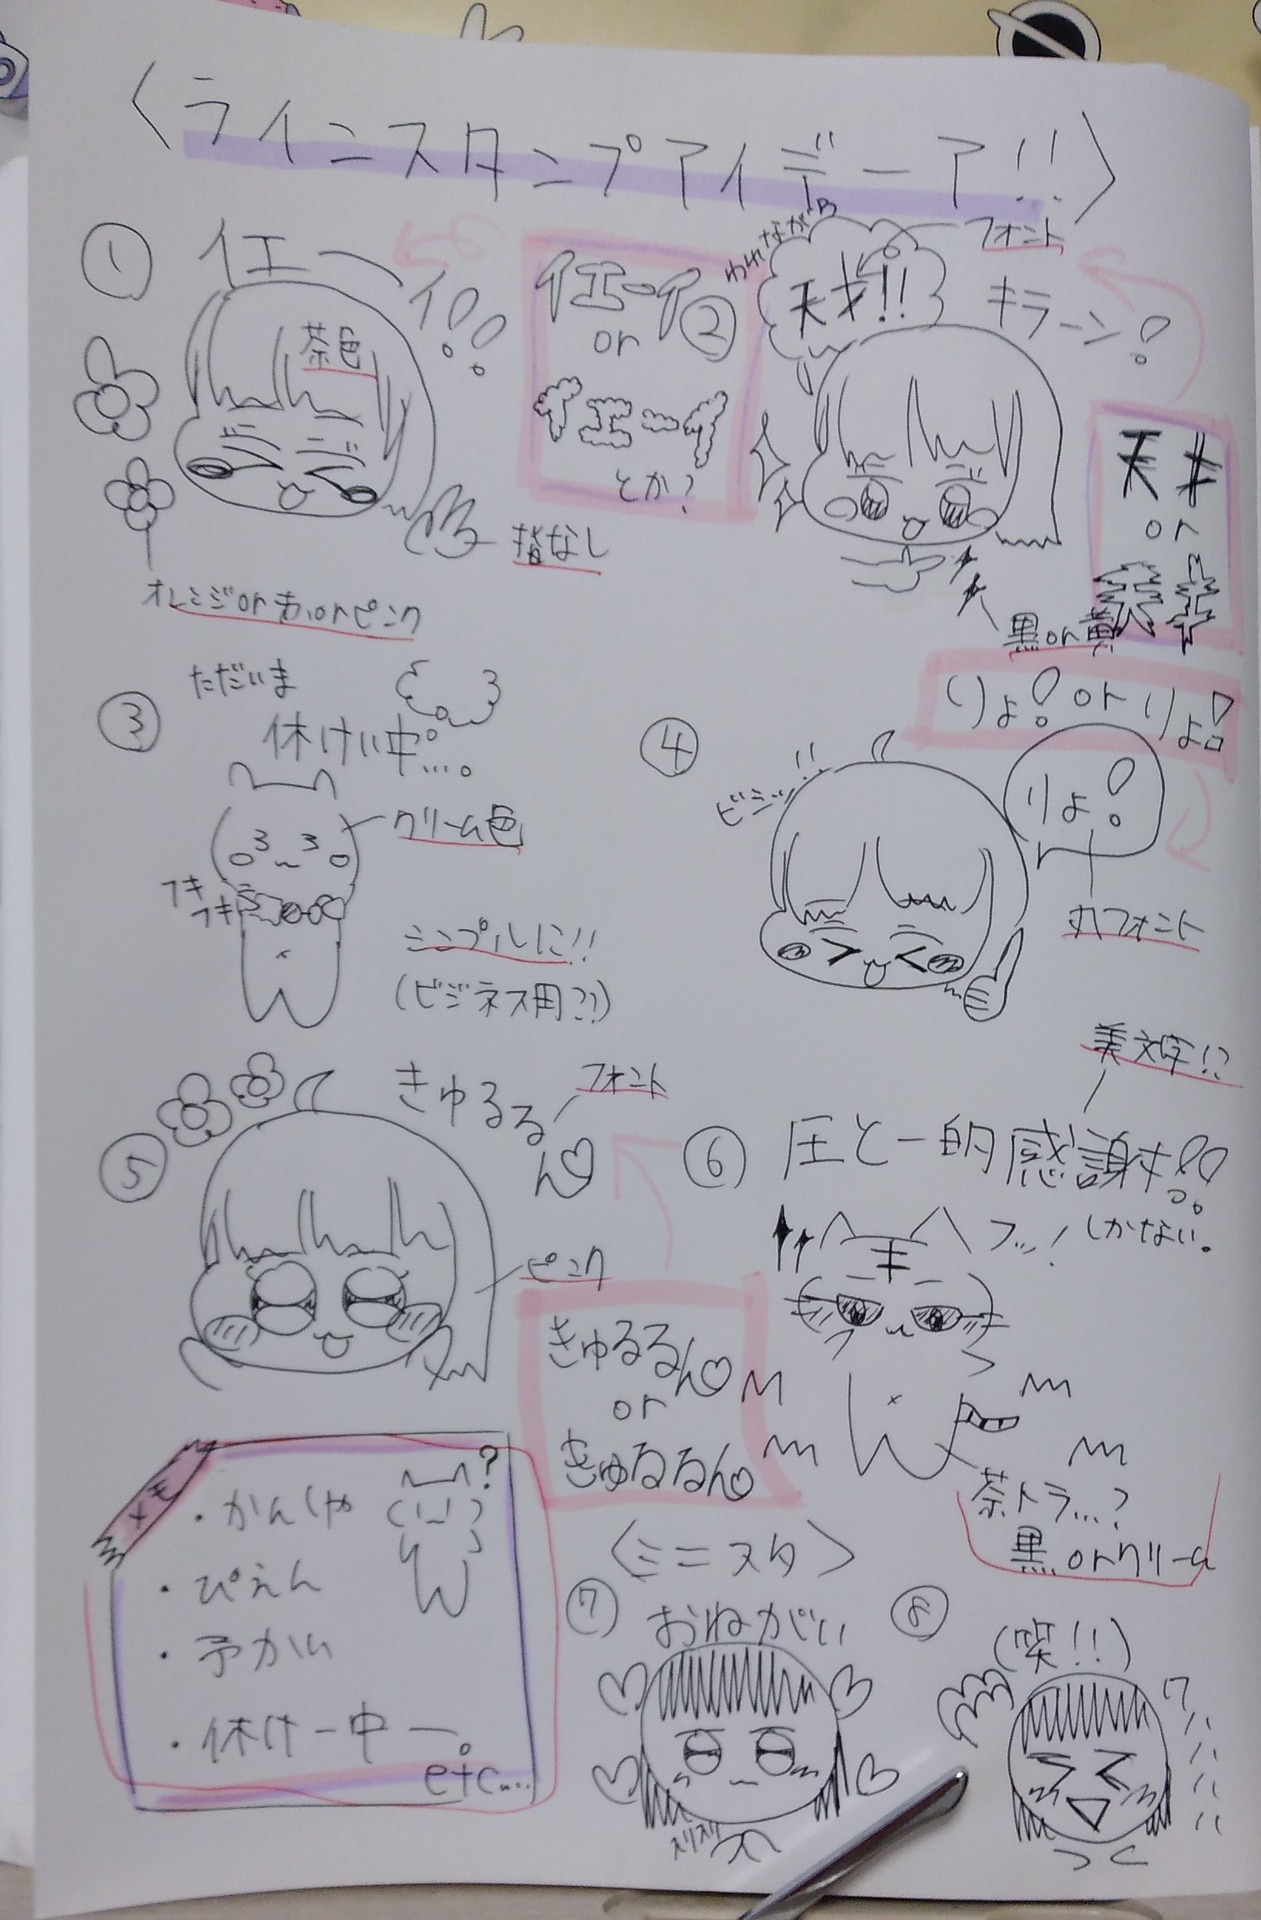 〈ラインスタンプアイデーア!!〉
① イエーイ!!
茶色
指なし
オレンジor赤orピンク
イエーイ
or
イエーイ
とか?
②
われながら
天才!!
フォント
キラーン!
黒or黄
天才
or
天才
③
ただいま
休けい中…。
クリーム色
フキ
フキ
シンプルに!!
(ビジネス用?!)
④
りょ!orりょ!
ビシッ!!
りょ!
丸フォント
⑤
きゅるるん♡
フォント
ピンク
きゅるるん♡
or
きゅるるん♡
⑥
美文字!?
圧とー的感謝!!
しかない。
フッ!
キ
茶トラ…?
黒orクリーム
メモ
・かんしゃ
・ぴえん
・予かん
・休けー中ー。
etc...
?
〈ミニスタ〉
⑦
おねがい
スリスリ
⑧
(笑!!)
ワハハハハ